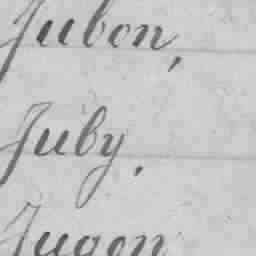 Jubon,
Juby.
Jugon